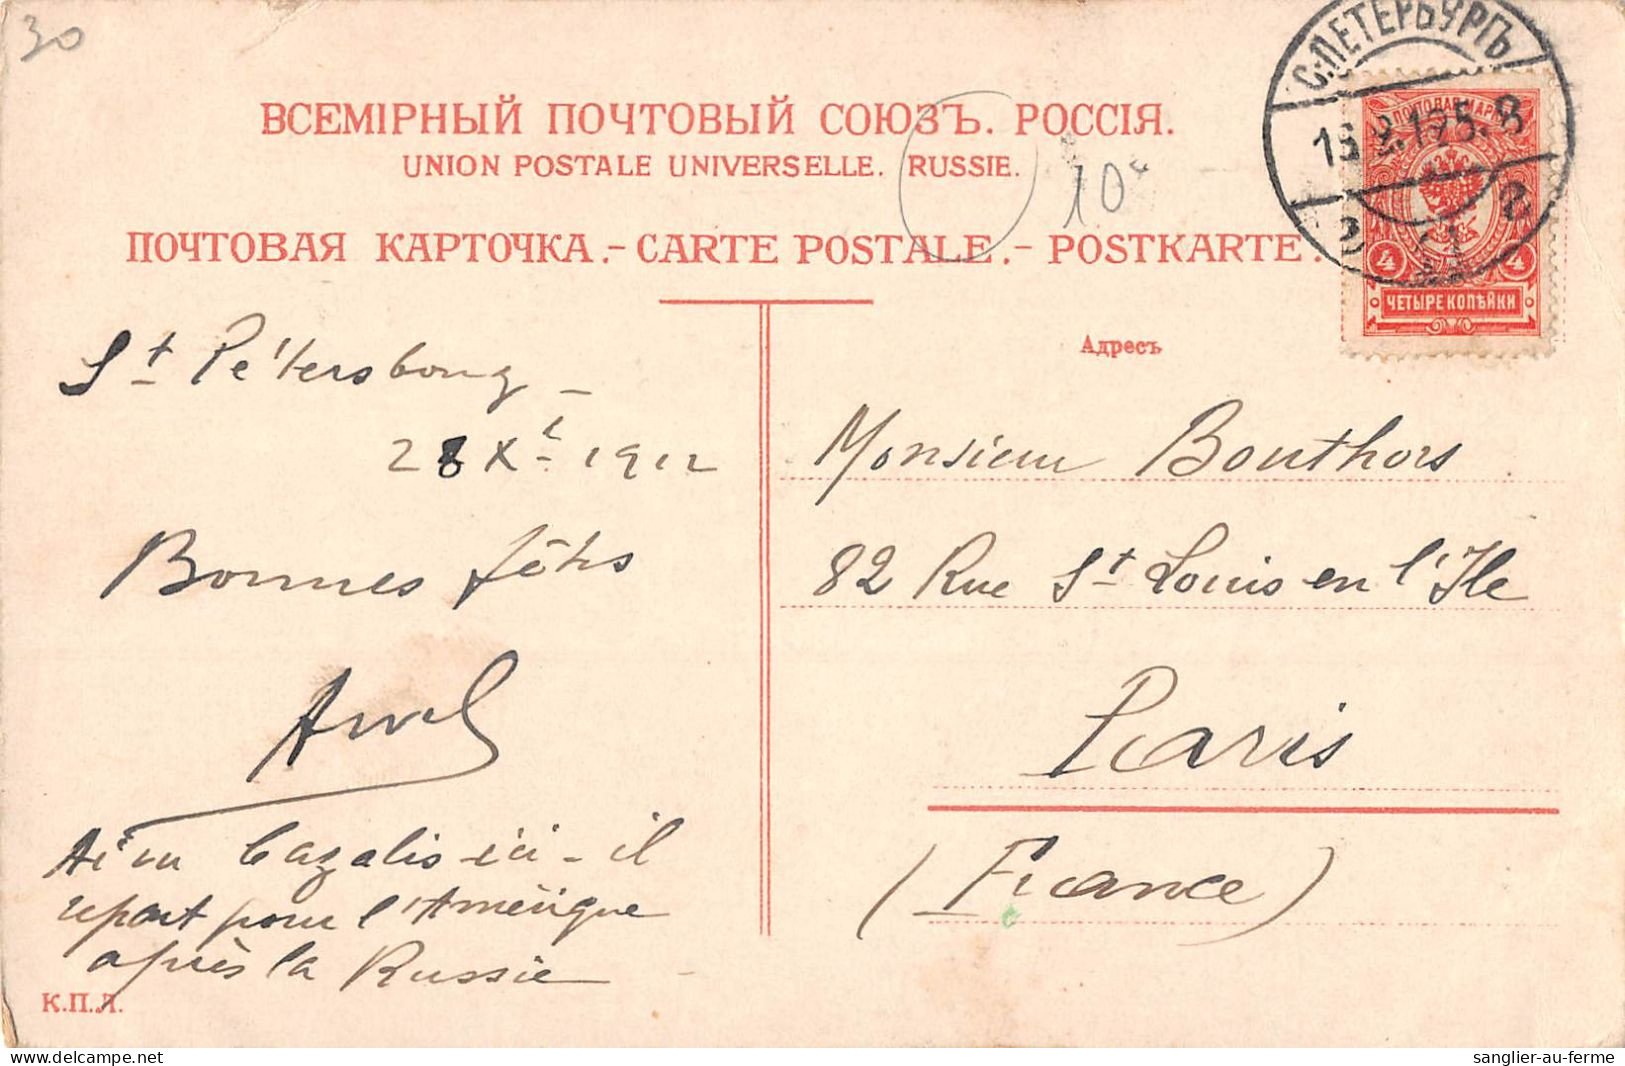 30
ВСЕМІРНЫЙ ПОЧТОВЫЙ СОЮЗЪ. РОССІЯ.
UNION POSTALE UNIVERSELLE. RUSSIE.
10c
ПОЧТОВАЯ КАРТОЧКА.-CARTE POSTALE.-POSTKARTE.
С.ПЕТЕРБУРГЪ
ПОЧТОВАЯ МАРКА
4 4
ЧЕТЫРЕ КОПѢЙКИ
St Pétersbourg
28 Xe 1912
Bonnes fêtes
Ai vu Cazalis ici - il
repart pour l'Amérique
après la Russie
К.П.Л.
Адресъ
Monsieur Bouthors
82 Rue St Louis en l'Ile
Paris
(France)
delcampe.net
sanglier-au-ferme